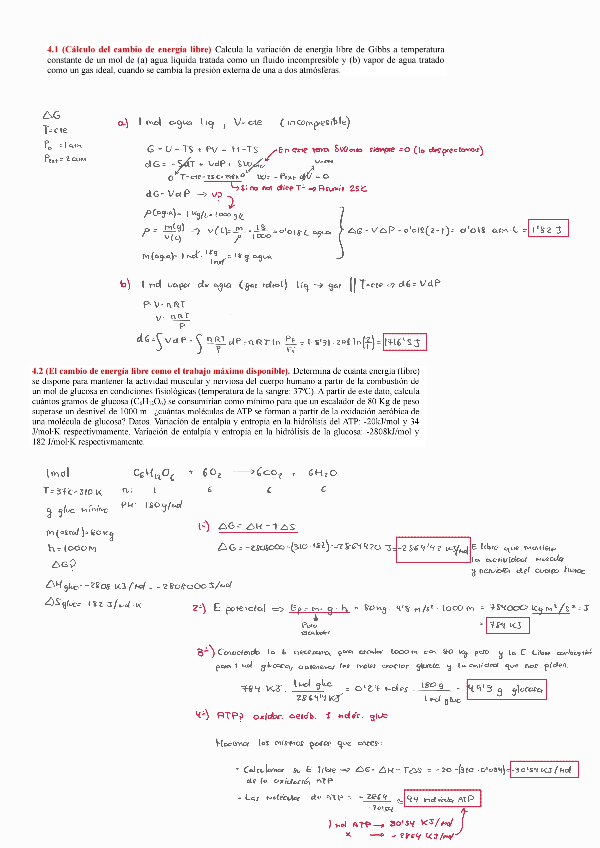 4.1 (Cálculo del cambio de energía libre) Calcula la variación de energía libre de Gibbs a temperatura
constante de un mol de (a) agua líquida tratada como un fluido incompresible y (b) vapor de agua tratado
como un gas ideal, cuando se cambia la presión externa de una a dos atmósferas.
ΔG
T=cte
P₀ = 1 atm
Pext = 2 atm
a) 1 mol agua liq , V=cte (incompresible)
G = U - TS + PV = H - TS
En este tema siempre =0 (lo despreciamos)
dG = -SdT + VdP +
Si no nos dice T → Asumir 25ºC
dG = VdP → V?
ρ(agua) = 1 kg/L = 1000 g/L
ρ = m(g)/V(L) → V(L) = m/ρ = 18/1000 = 0'018 L agua
m(agua) = 1 mol · 18g/1mol = 18 g agua
ΔG = VΔP = 0'018(2-1) = 0'018 atm·L = 1'82 J
b) 1 mol vapor de agua (gas ideal) liq → gas || T=cte → dG = VdP
P·V = nRT
V = nRT/P
dG = ∫ VdP = ∫ nRT/P dP = nRT ln = 1·8'31·298 ln(2/1) = 1716'5 J
4.2 (El cambio de energía libre como el trabajo máximo disponible). Determina de cuánta energía (libre)
se dispone para mantener la actividad muscular y nerviosa del cuerpo humano a partir de la combustión de
un mol de glucosa en condiciones fisiológicas (temperatura de la sangre: 37ºC). A partir de este dato, calcula
cuántos gramos de glucosa (C₆H₁₂O₆) se consumirían como mínimo para que un escalador de 80 Kg de peso
superase un desnivel de 1000 m ¿cuántas moléculas de ATP se forman a partir de la oxidación aeróbica de
una molécula de glucosa? Datos. Variación de entalpía y entropía en la hidrólisis del ATP: -20kJ/mol y 34
J/mol·K respectivamente. Variación de entalpía y entropía en la hidrólisis de la glucosa: -2808kJ/mol y
182 J/mol·K respectivamente.
1mol C₆H₁₂O₆ + 6O₂ → 6CO₂ + 6H₂O
T = 37ºC = 310 K n: 1 6 6 6
g gluc mínimo PM: 180 g/mol
m(escal) = 80 kg
h = 1000 m
ΔG?
ΔH gluc = -2808 KJ/mol = -2808000 J/mol
ΔS gluc = 182 J/mol·K
1º) ΔG = ΔH - TΔS
ΔG = -2808000 - (310·182) = -2864420 J = -2864'42 KJ/mol
E libre que mantiene
la actividad muscular
y nerviosa del cuerpo humano
2º) E potencial ⇒ Ep = m·g·h = 80kg · 9'8 m/s² · 1000 m = 784000 kg m²/s² = J
= 784 KJ
Para
escalador
3º) Conociendo la E necesaria para escalar 1000m con 80 kg peso y la E libre
para 1 mol glucosa, que nos piden.
784 KJ · 1mol gluc/2864'4 KJ = 0'27 moles · 180 g/1 mol gluc = 49'3 g glucosa
4º) ATP? oxidac. aerób. 1 moléc. gluc
Hacemos los mismos pasos que antes:
- Calculamos su E libre ⇒ ΔG = ΔH - TΔS = -20 - (310 · 0'034) = -30'54 KJ/mol
de la oxidación ATP
- Las moléculas de ATP = -2864/-30'54 = 94 moléculas ATP
1 mol ATP → 30'54 KJ/mol
x → -2864 KJ/mol